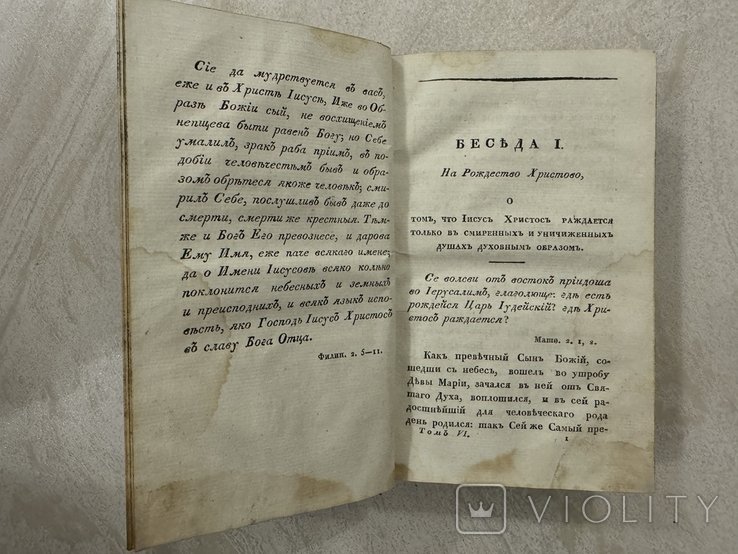 Сіе да мудрствуется въ васъ,
еже и въ Христѣ Іисусѣ, Иже во Об-
разѣ Божіи сый, не восхищеніемъ
непщева быти равенъ Богу; но Себе
умалилъ, зракъ раба пріимъ, въ по-
добіи человѣчестѣмъ бывъ и обра-
зомъ обрѣтеся якоже человѣкъ; сми-
рилъ Себе, послушливъ бывъ даже до
смерти, смерти же крестныя. Тѣм-
же и Богъ Его превознесе, и дарова
Ему Имя, еже паче всякаго имене;
да о Имени Іисусовѣ всяко колѣно
поклонится небесныхъ и земныхъ
и преисподнихъ, и всякъ языкъ испо-
вѣсть, яко Господь Іисусъ Христосъ
въ славу Бога Отца.
Филип. 2. 5—11.
БЕСѢДА I.
На Рождество Христово,
О
ТОМЪ, ЧТО ІИСУСЪ ХРИСТОСЪ РАЖДАЕТСЯ
ТОЛЬКО ВЪ СМИРЕННЫХЪ И УНИЧИЖЕННЫХЪ
ДУШАХЪ ДУХОВНЫМЪ ОБРАЗОМЪ.
Се волсви отъ востокъ пріидоша
во Іерусалимъ, глаголюще: гдѣ есть
рождейся Царь Іудейскій? гдѣ Хри-
стосъ раждается?
Матѳ. 2. 1, 2.
Какъ превѣчный Сынъ Божій, со-
шедши съ небесъ, вошелъ во утробу
Дѣвы Маріи, зачался въ ней отъ Свя-
таго Духа, воплотился, и въ сей ра-
достнѣйшій для человѣческаго рода
день родился: такъ Сей же Самый пре-
Томъ VI. 1
VIOLITY